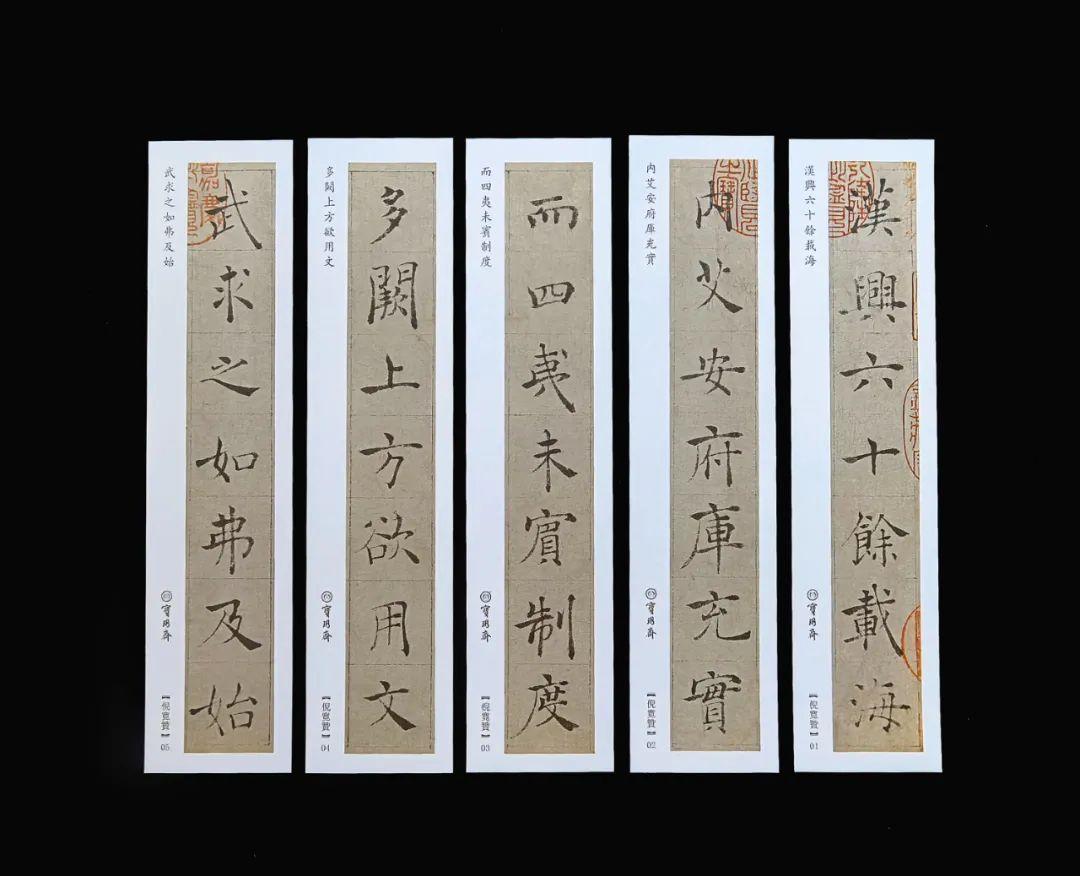 漢興六十餘載海
漢興六十餘載海
寶玥齋
【倪寬贊】01
內艾安府庫充實
內艾安府庫充實
寶玥齋
【倪寬贊】02
而四夷未賓制度
而四夷未賓制度
寶玥齋
【倪寬贊】03
多闕上方欲用文
多闕上方欲用文
寶玥齋
【倪寬贊】04
武求之如弗及始
武求之如弗及始
寶玥齋
【倪寬贊】05